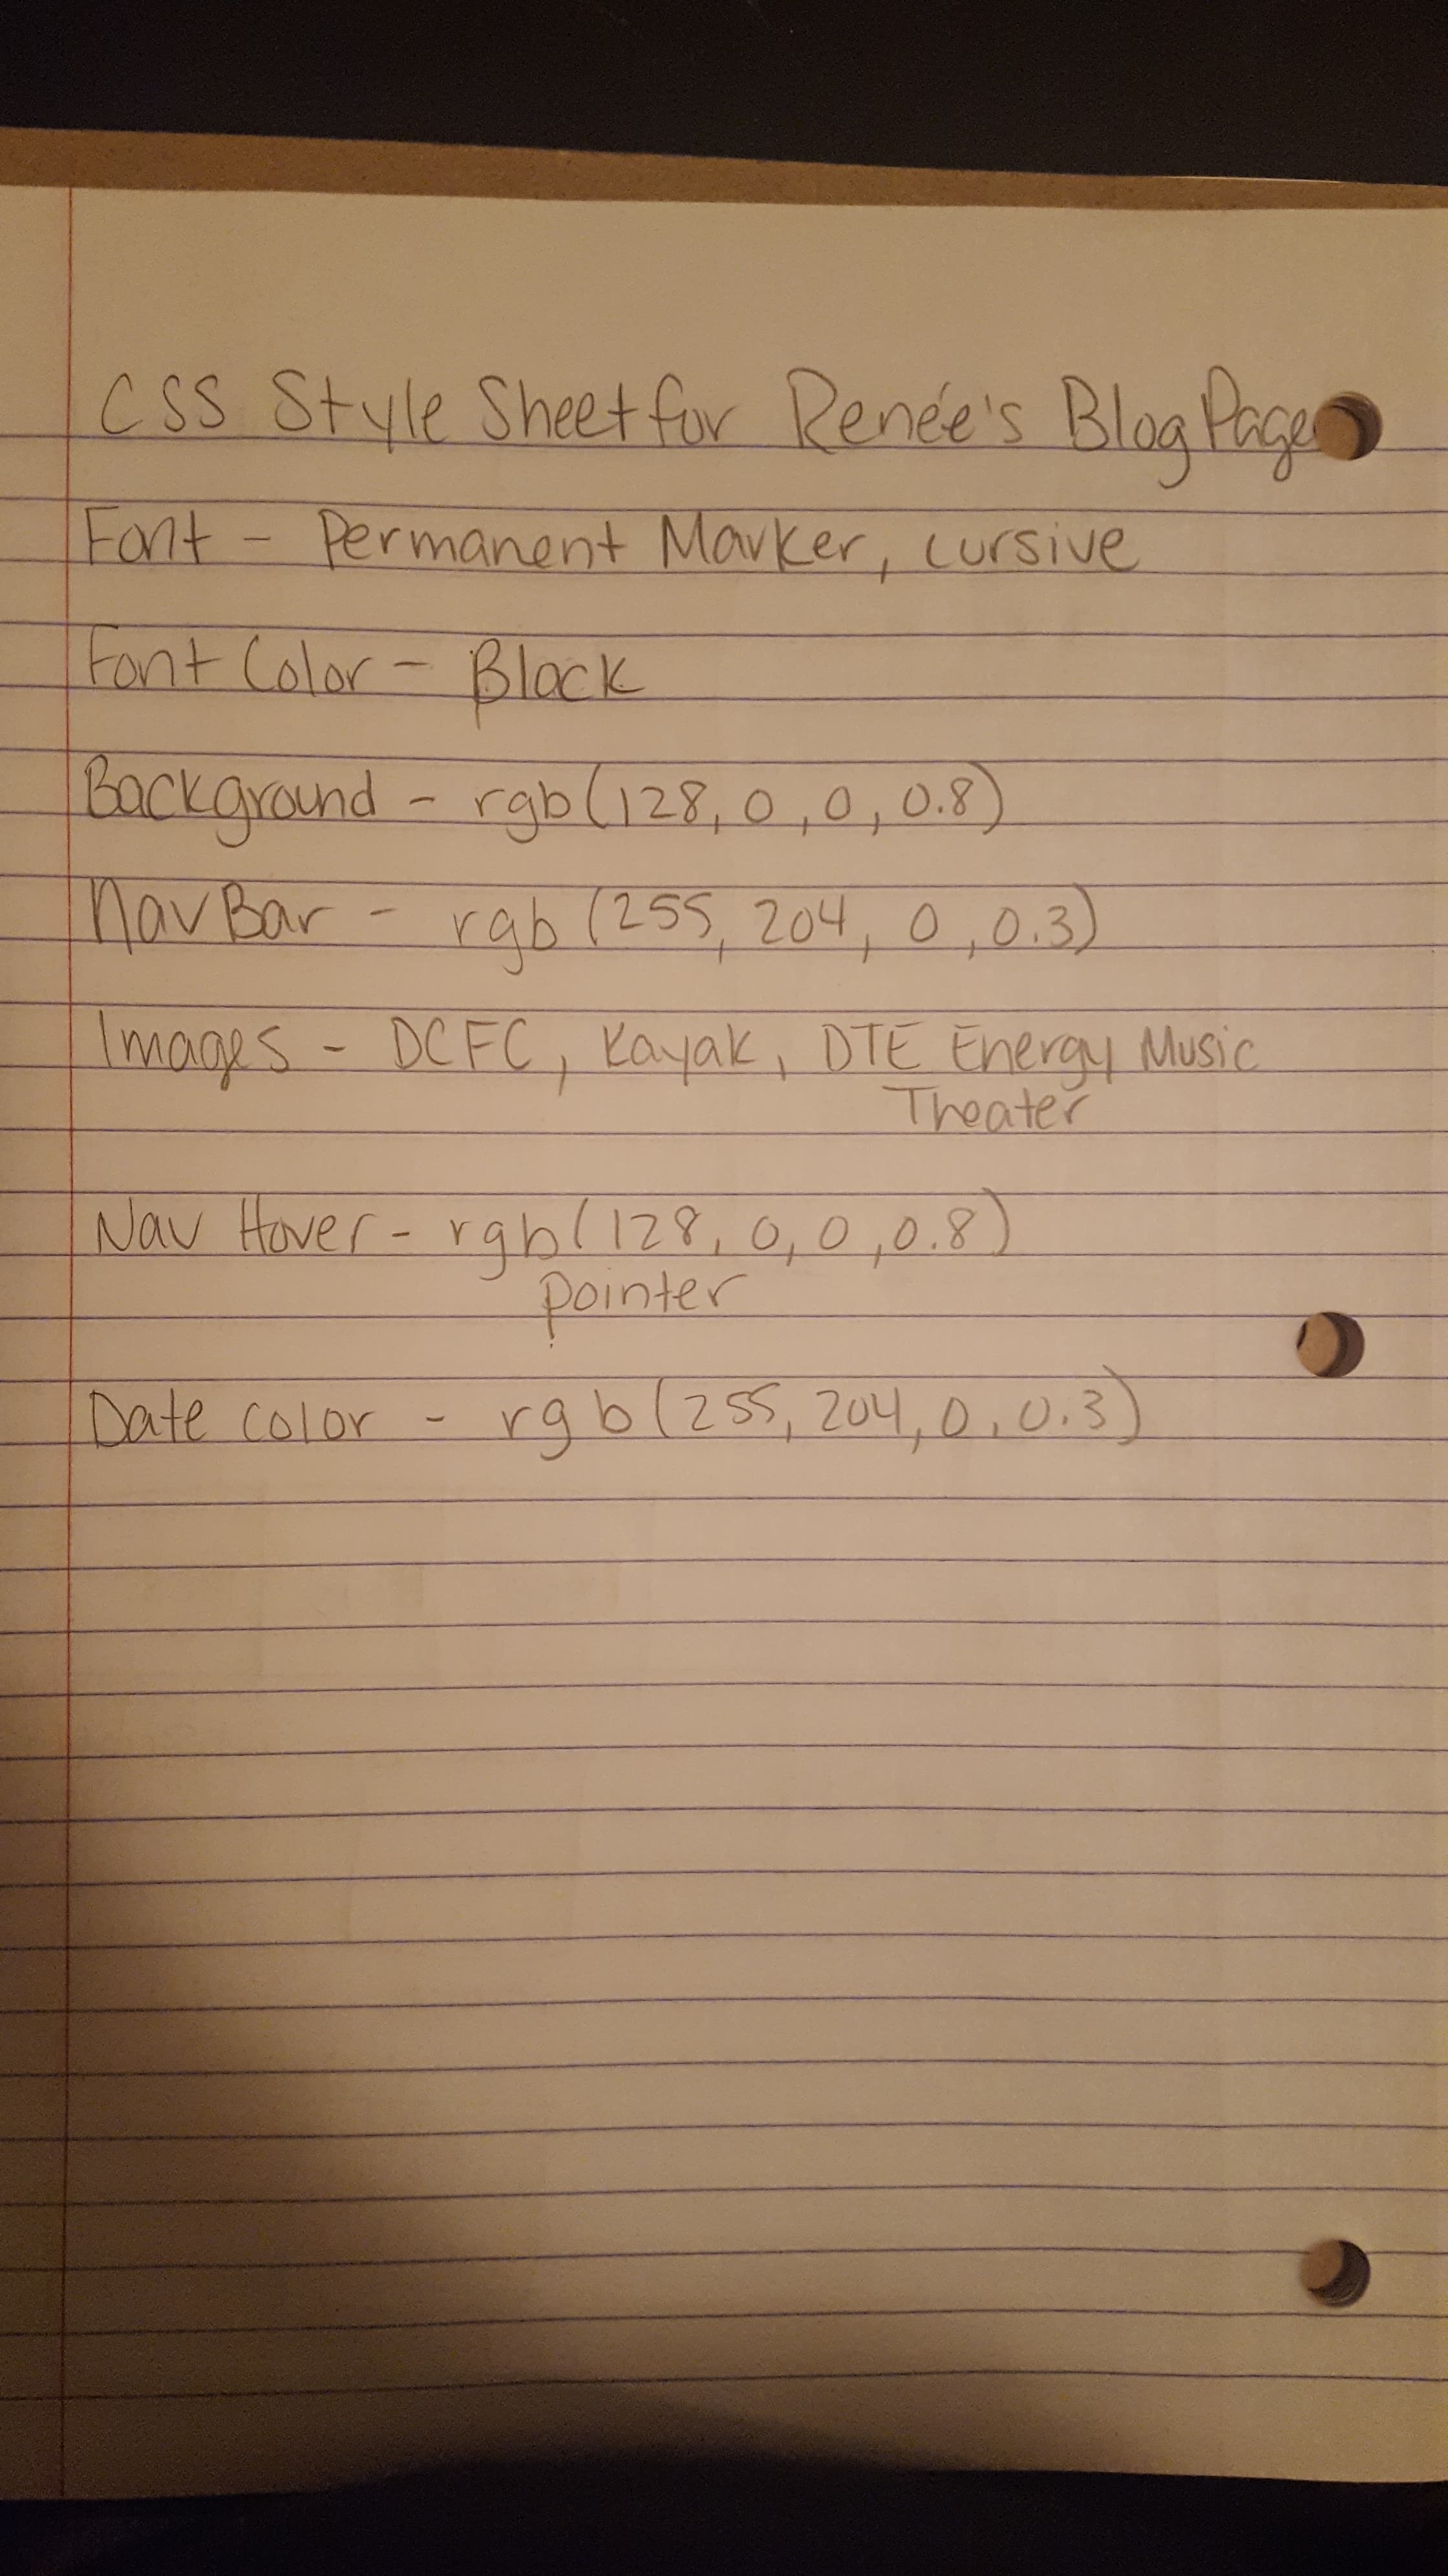 CSS Style Sheet for Renée's Blog Page
Font - Permanent Marker, cursive
Font Color - Black
Background - rgb(128, 0, 0, 0.8)
Nav Bar - rgb (255, 204, 0, 0.3)
Images - DCFC, Kayak, DTE Energy Music
Theater
Nav Hover - rgb(128, 0, 0, 0.8)
pointer
Date color - rgb(255, 204, 0, 0.3)